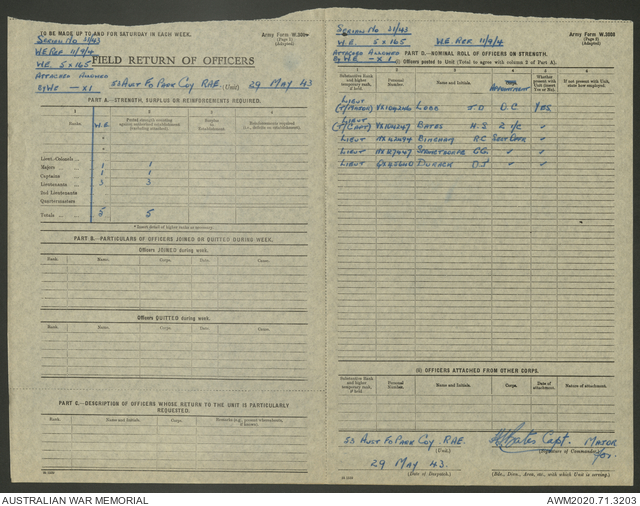 TO BE MADE UP TO AND FOR SATURDAY IN EACH WEEK.
Army Form W.3008
(Page 1)
(Adapted)
SERIAL No 21/43
W.E. REF 11/9/4
W.E. 5 x 165
ATTACHED ALLOWED
BY WE — X1
FIELD RETURN OF OFFICERS
53 AUST FD PARK COY RAE. (Unit) 29 MAY 43
PART A.—STRENGTH, SURPLUS OR REINFORCEMENTS REQUIRED.
1 2 3 4
Ranks. W.E. Posted strength counting against authorized establishment (excluding attached). Surplus to Establishment. Reinforcements required
Lieut.-Colonels
Majors 1 1
Captains 1 1
Lieutenants 3 3
2nd Lieutenants
Quartermasters
Totals 5 5
PART B.—PARTICULARS OF OFFICERS JOINED OR QUITTED DURING WEEK.
Officers JOINED during week.
Rank. Name and Initials. Corps. Date. Cause.
Officers QUITTED during week.
Rank. Name and Initials. Corps. Date. Cause.
PART C.—DESCRIPTION OF OFFICERS WHOSE RETURN TO THE UNIT IS PARTICULARLY REQUESTED.
Rank. Name and Initials. Corps. Remarks (e.g., present whereabouts, if known).
SERIAL No 21/43
W.E. 5 x 165 WE REF 11/9/4
Army Form W.3008
(Page 2)
(Adapted)
ATTACHED ALLOWED
BY WE — X1
PART D.—NOMINAL ROLL OF OFFICERS ON STRENGTH.
(i) Officers posted to Unit (Total to agree with column 2 of Part A).
1 2 3 4 5 6
Substantive Rank and higher temporary rank, if held. Personal Number. Name and Initials. APPOINTMENT Whether present with Unit. (Insert Yes or No). If not present with Unit, show how employed.
LIEUT
(T/MAJOR) LEGG J D O.C. YES
LIEUT
(T/CAPT) BATES H.S 2 I/C "
LIEUT BINGHAM R C "
LIEUT C.G. "
LIEUT DURACK D J "
(ii) OFFICERS ATTACHED FROM OTHER CORPS.
Substantive Rank and higher temporary rank, if held. Personal Number. Name and Initials. Corps. Date of attachment. Nature of attachment.
53 AUST FD PARK COY RAE.
(Unit.)
HSBates Capt. MAJOR
for.
(Signature of Commander)
29 MAY 43.
(Date of Despatch.)
(Bde., Divn., Area, etc., with which Unit is serving.)
AUSTRALIAN WAR MEMORIAL
AWM2020.71.3203